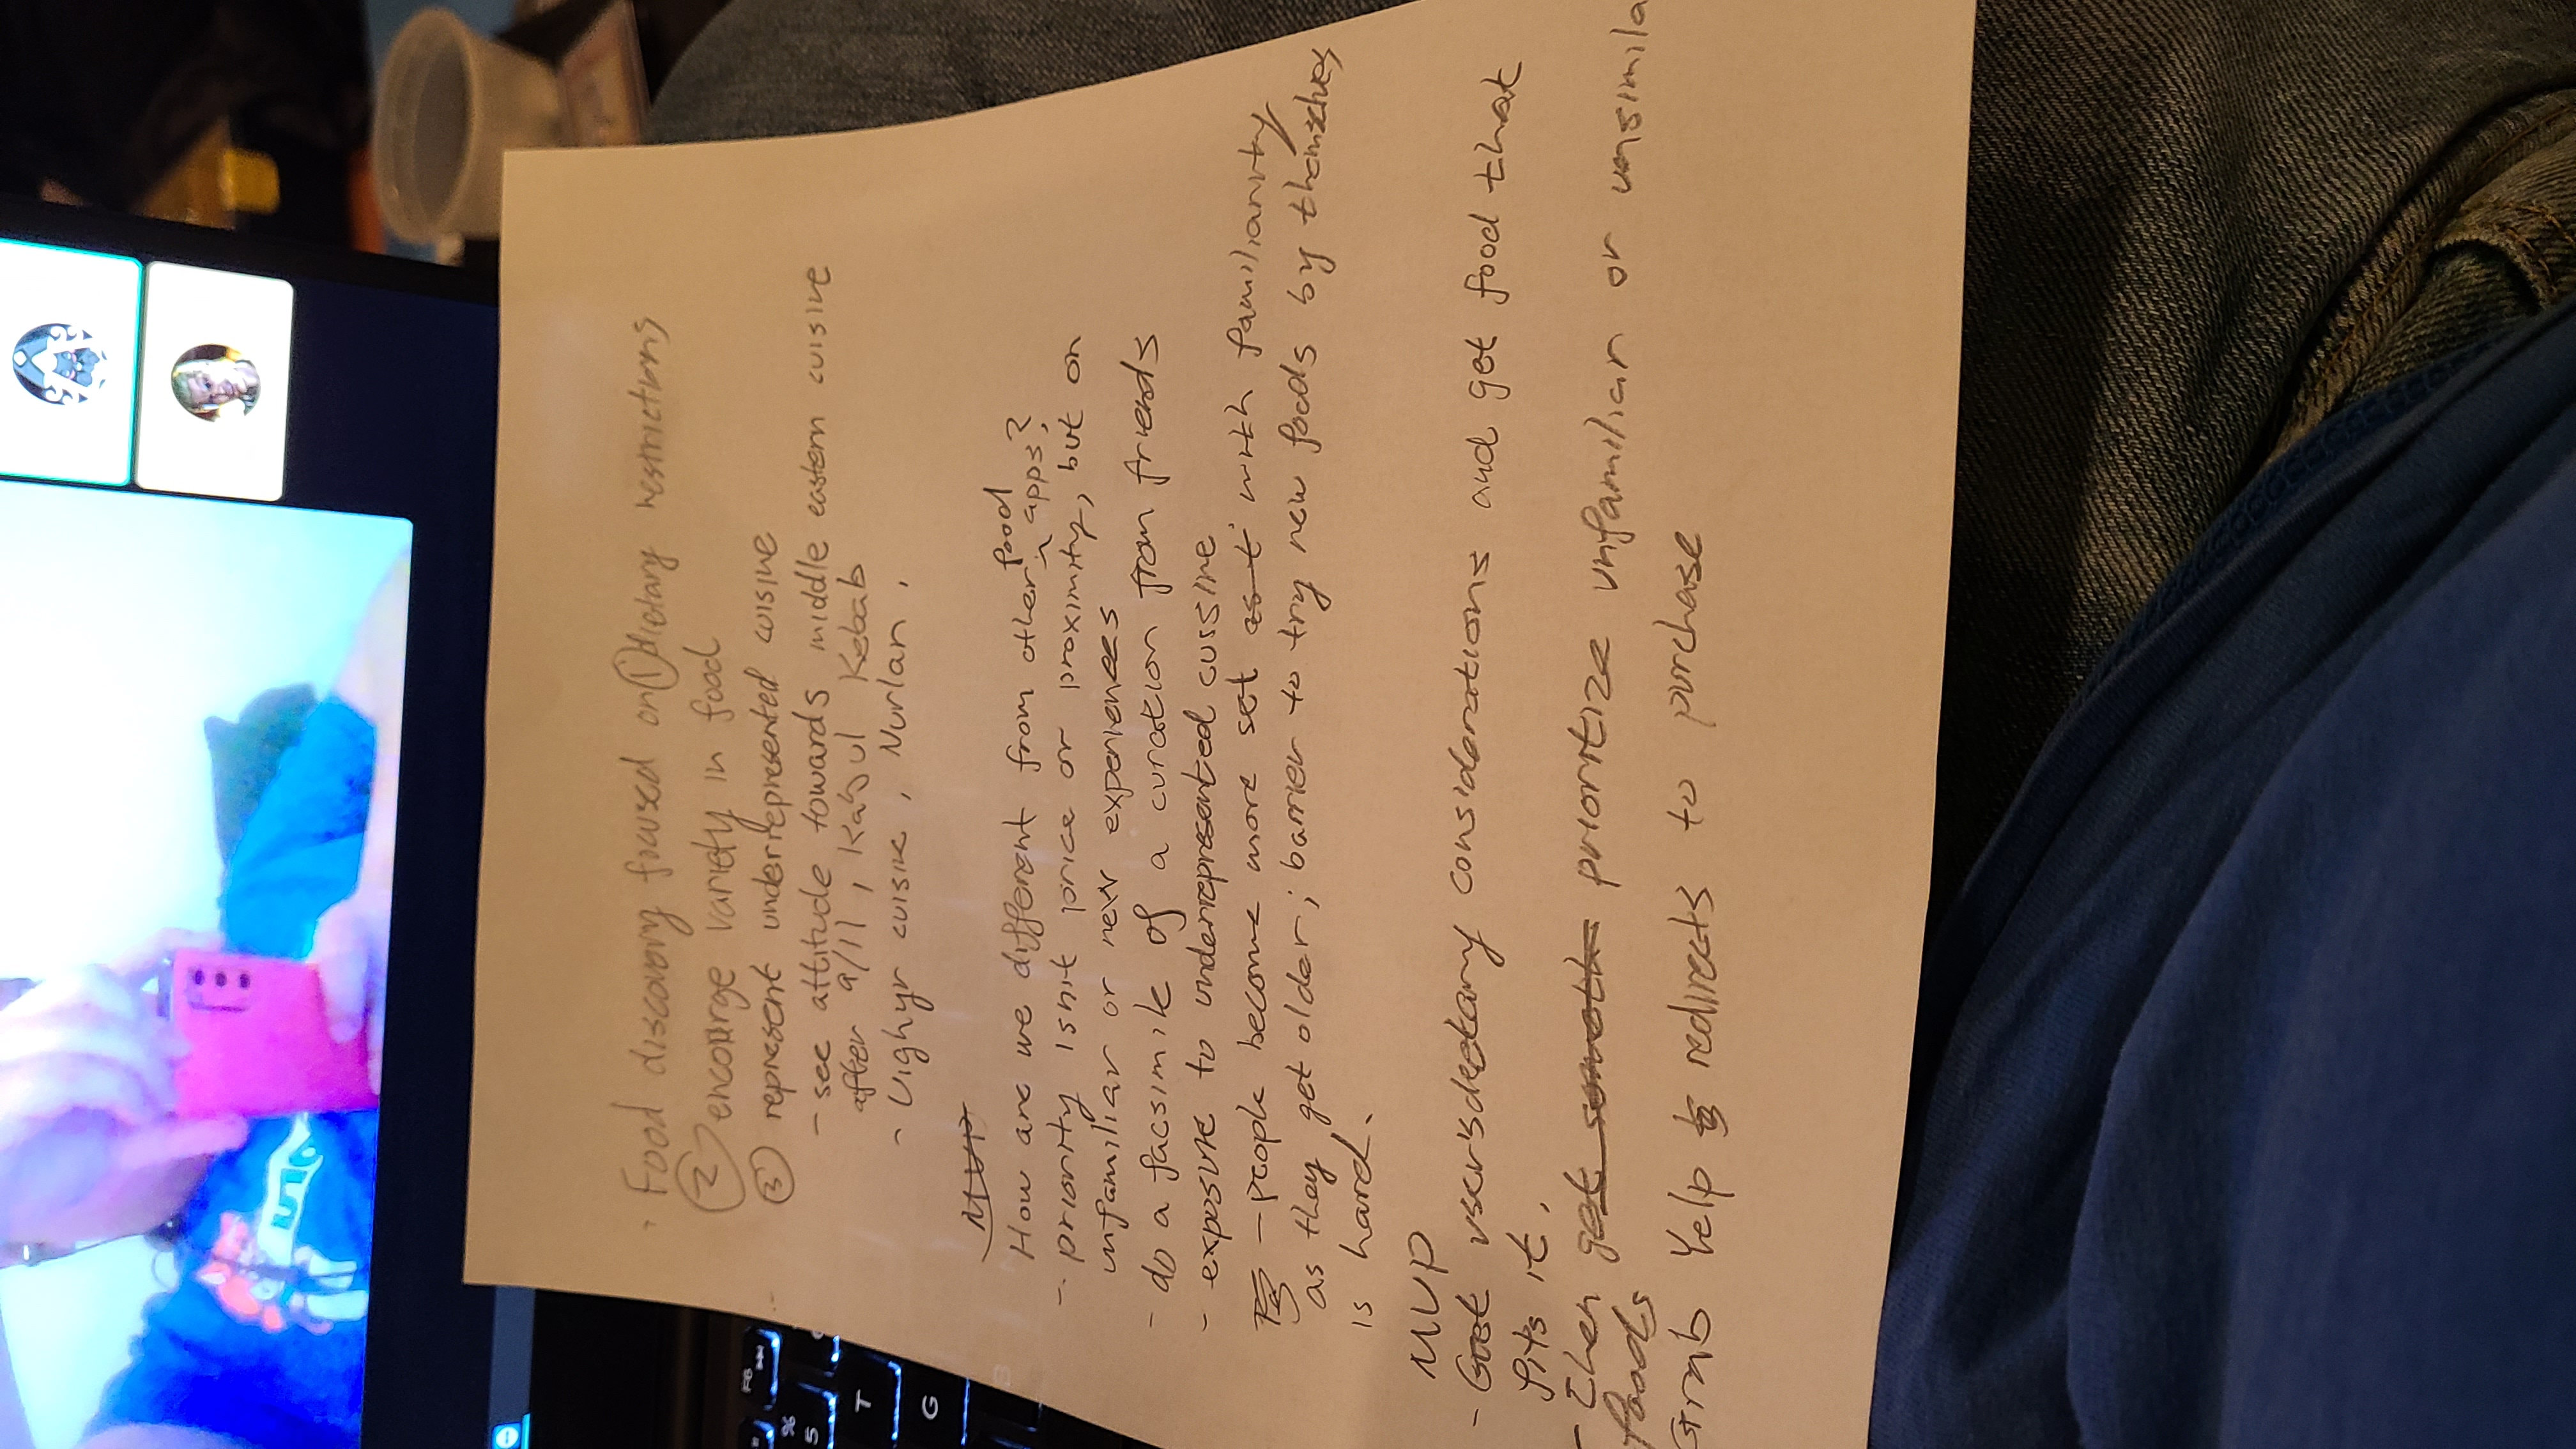 · Food discovery focused on ① dietary restrictions
② encourage variety in food
③ represent underrepresented cuisine
- see attitude towards middle eastern cuisine
after 9/11, Kabul Kebab
- Uighyr cuisine, Nurlan,
MVP
How are we different from other food apps?
- priority isn't price or proximity, but on
unfamiliar or new experiences
- do a facsimile of a curation from friends
- exposure to underrepresented cussine
- people become more set as t with familiarity
as they get older; barrier to try new foods by themselves
is hard.
MVP
- Get user's dietary considerations and get food that
fits it.
- Then get someth prioritize unfamilian or unsimila
foods
Grab Yelp redirects to purchase
F8
%
5
T
G